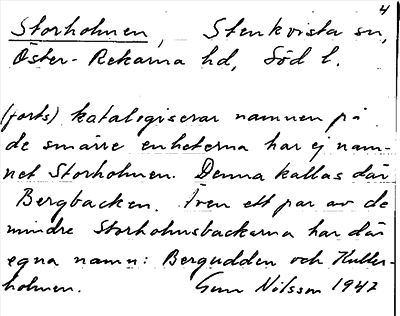 4
Storholmen, Stenkvista sn,
Öster-Rekarna hd, Söd l.
(forts) katalogiserar namnen på
de smärre enheterna har ej nam-
net Storholmen. Denna kallas där
Bergbacken. Även ett par av de
mindre Storholmsbackarna har där
egna namn: Bergudden och Huller-
holmen. Gun Nilsson 1947